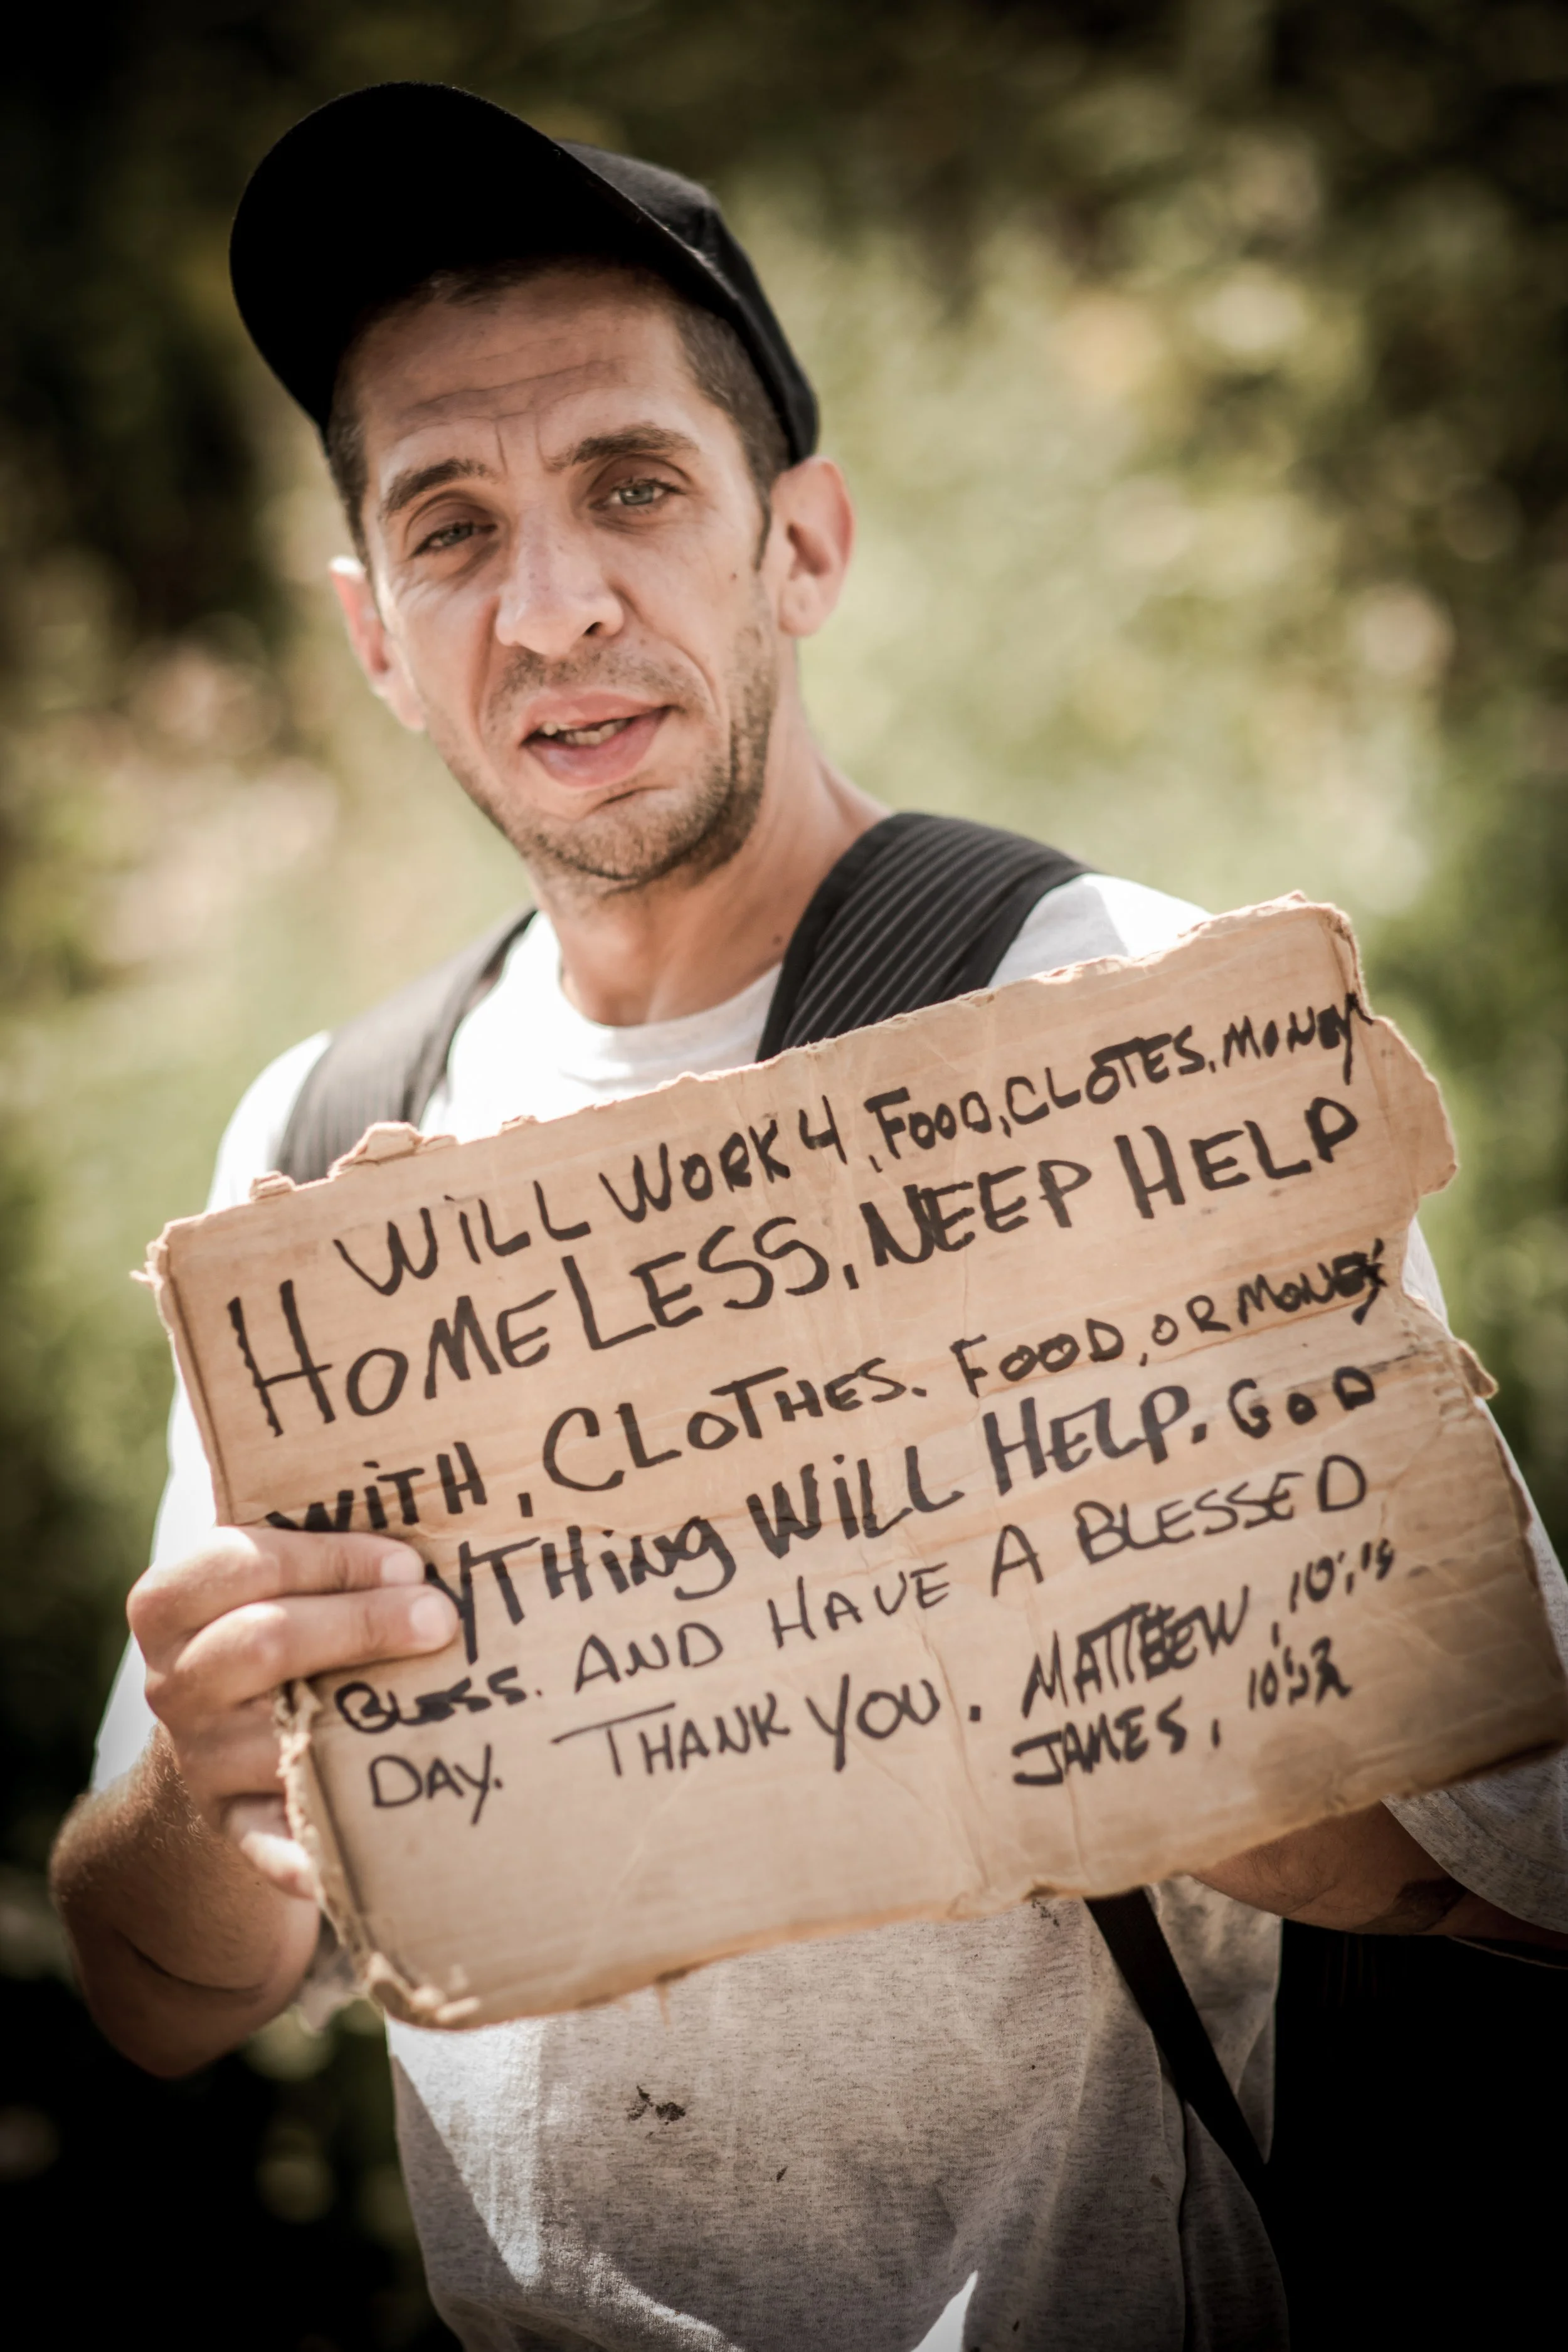 WILL WORK 4, FOOD, CLOTES, MONEY
HOMELESS, NEEP HELP
WITH, CLOTHES. FOOD, OR MONEY
YTHING WILL HELP. GOD
BLESS. AND HAVE A BLESSED
DAY. THANK YOU. MATTHEW,
JAMES,